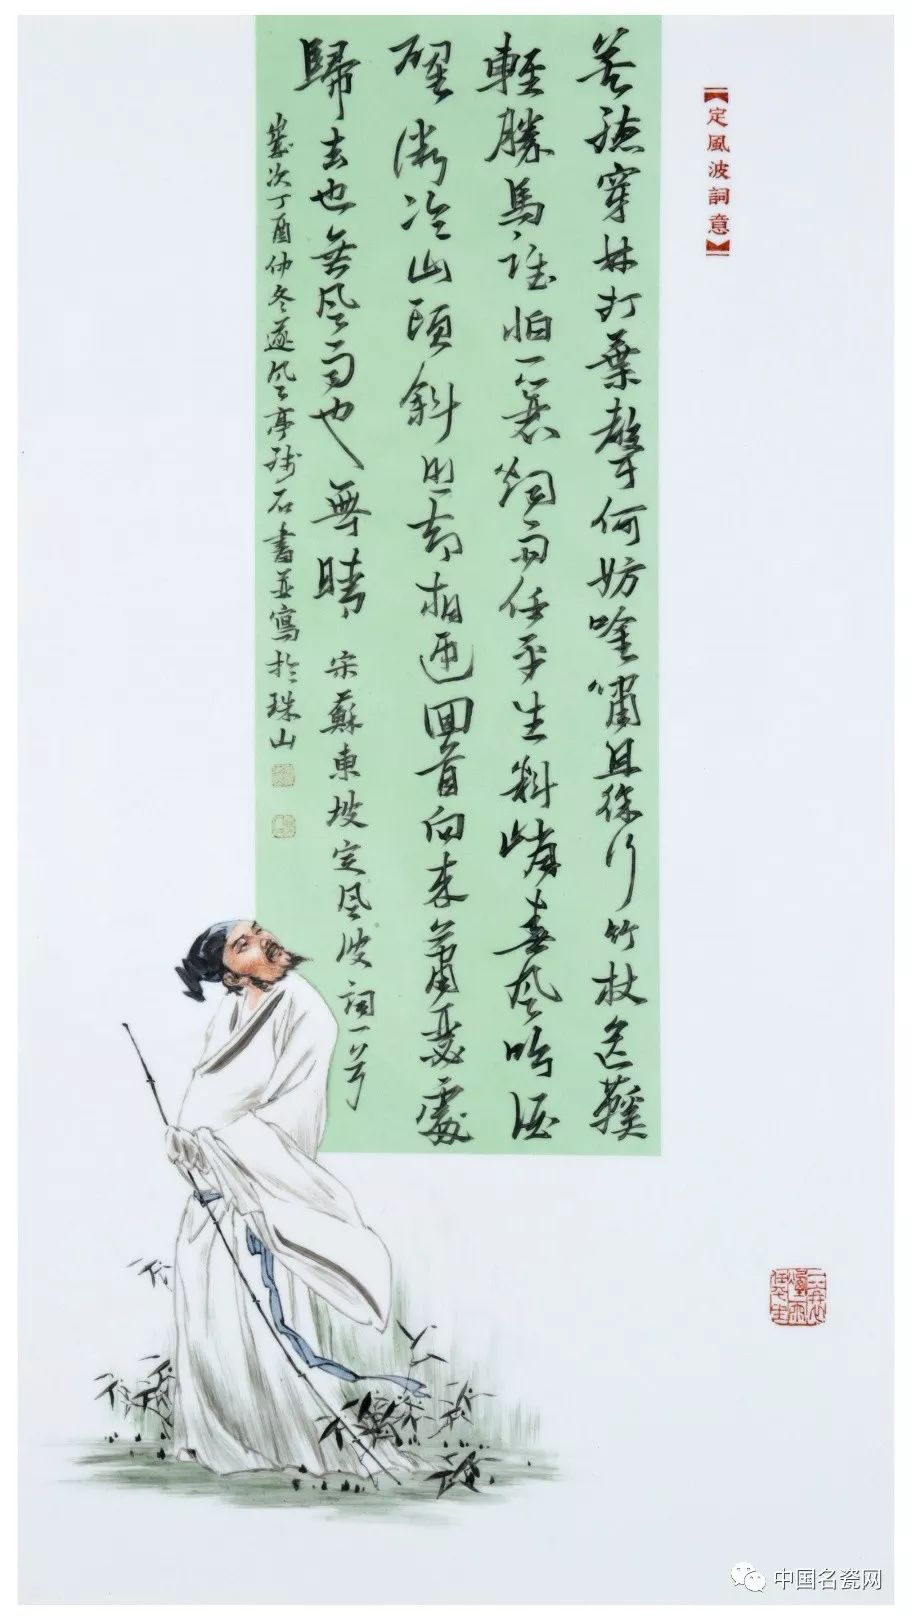 【定風波詞意】
莫聽穿林打葉聲何妨唫嘯且徐行竹杖芒鞵
輕勝馬誰怕一蓑烟雨任平生料峭春風吹酒
醒微冷山頭斜照却相迎回首向來蕭瑟處
歸去也無風雨也無晴 宋蘇東坡定風波詞一首
歲次丁酉仲冬遂風亭石書並寫於珠山
一蓑煙雨任平生
中国名瓷网